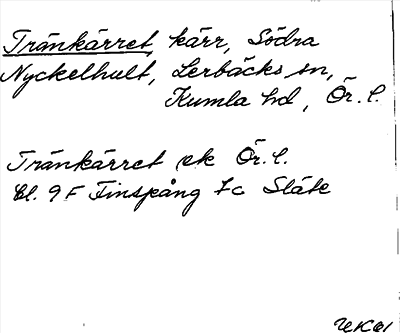 Tränkärret, kärr, Södra
Nyckelhult, Lerbäcks sn,
Kumla hd, Ör. l.
Tränkärret ek Ör. l.
Bl. 9 F Finspång 7c Släte